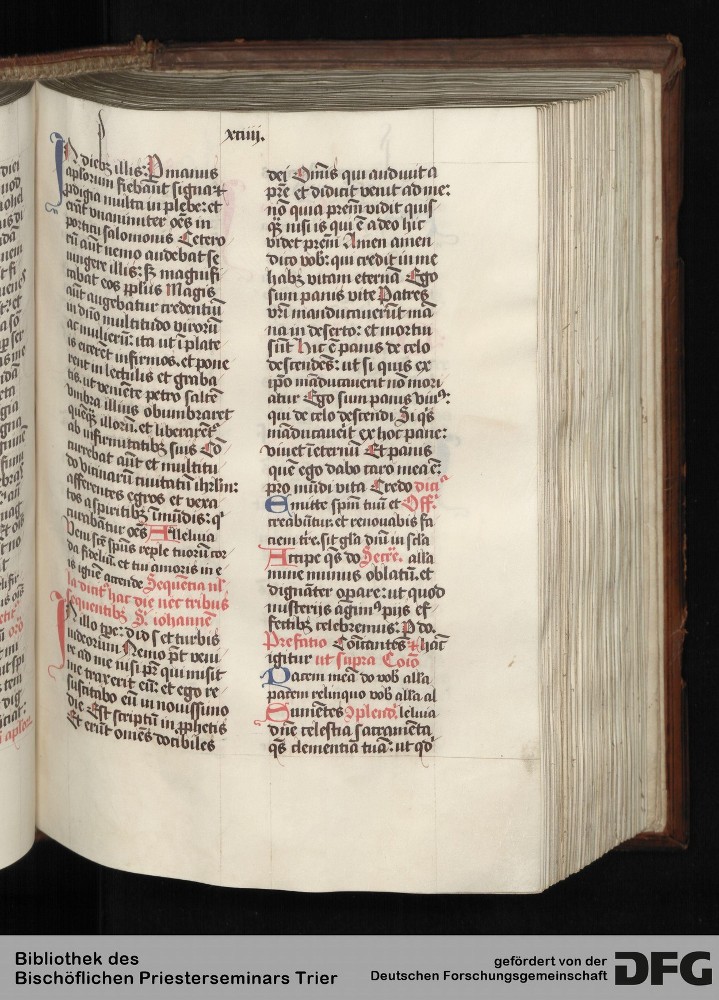 xciiij.
N dieb; illis: P manus
aplorum fiebant signa et
pdigia multa in plebe: et
erāt vnanimiter oēs in
porticu salomonis Cetero
rū aūt nemo audebat se
iungere illis: s; magnifi
cabat eos pplus Magis
aūt augebatur credentiū
in dn̄o multitudo virorū
ac mulierū: ita ut ī plate
as eicerēt infirmos. et pone
rent in lectulis et graba
tis. ut veniēte petro saltē
vmbra illius obumbraret
quēq; illorū. et liberarēt
ab infirmitatib; suis Cō
currebat aūt et multitu
do vicinarū ciuitatū ihrlm:
afferentes egros et vexa
tos a spiritib; īmūdis: q
curabātur oēs Alleluia
Veni scē spūs reple tuorū cor
da fideliū. et tui amoris in e
is ignē accende Sequētia
dicit hac die nec tribus
sequentib; S. iohannē
N illo tpe: dix ihs et turbis
iudeorum Nemo pōt veni
re ad me nisi pr̄ qui misit
me traxerit eū: et ego re
suscitabo eū in nouissimo
die Est scriptū in pphetis
Et erūt om̄es docibiles
dei Om̄is qui audiuit a
pr̄e et didicit venit ad me:
nō quia prem vidit quis
q̄ nisi is qui ē a deo hic
videt prem Amen amen
dico vob: qui credit in me
hab; vitam eternā Ego
sum panis vite Patres
vr̄i manducauerūt mā
na in deserto: et mortui
sūt Hic ē panis de celo
descendēs: ut si quis ex
ip̄o māducauerit nō mori
atur Ego sum panis viuꝰ:
qui de celo descendi Si q̄s
māducauerit ex hoc pane:
viuet ī eternū Et panis
quē ego dabo caro mea ē:
pro mūdi vita Credo
Emitte spm̄ tuū et Off
creabūtur. et renouabis fa
ciem tre. sit gl̄a dn̄i in scl̄a
Accipe q̄s do Secre. alla
mine munus oblatū. et
dignāter opare: ut quod
misterijs agimꝰ pijs ef
fectib; celebremus: P do.
Prefatio Cōicantes hāc
igitur ut supra Coīo
Pacem meā do vob alla
pacem relinquo vob alla al
Sumētes Oplend. leluia
dn̄e celestia sacramenta
q̄s clementiā tuā: ut qd
Bibliothek des
Bischöflichen Priesterseminars Trier
gefördert von der
Deutschen Forschungsgemeinschaft
DFG